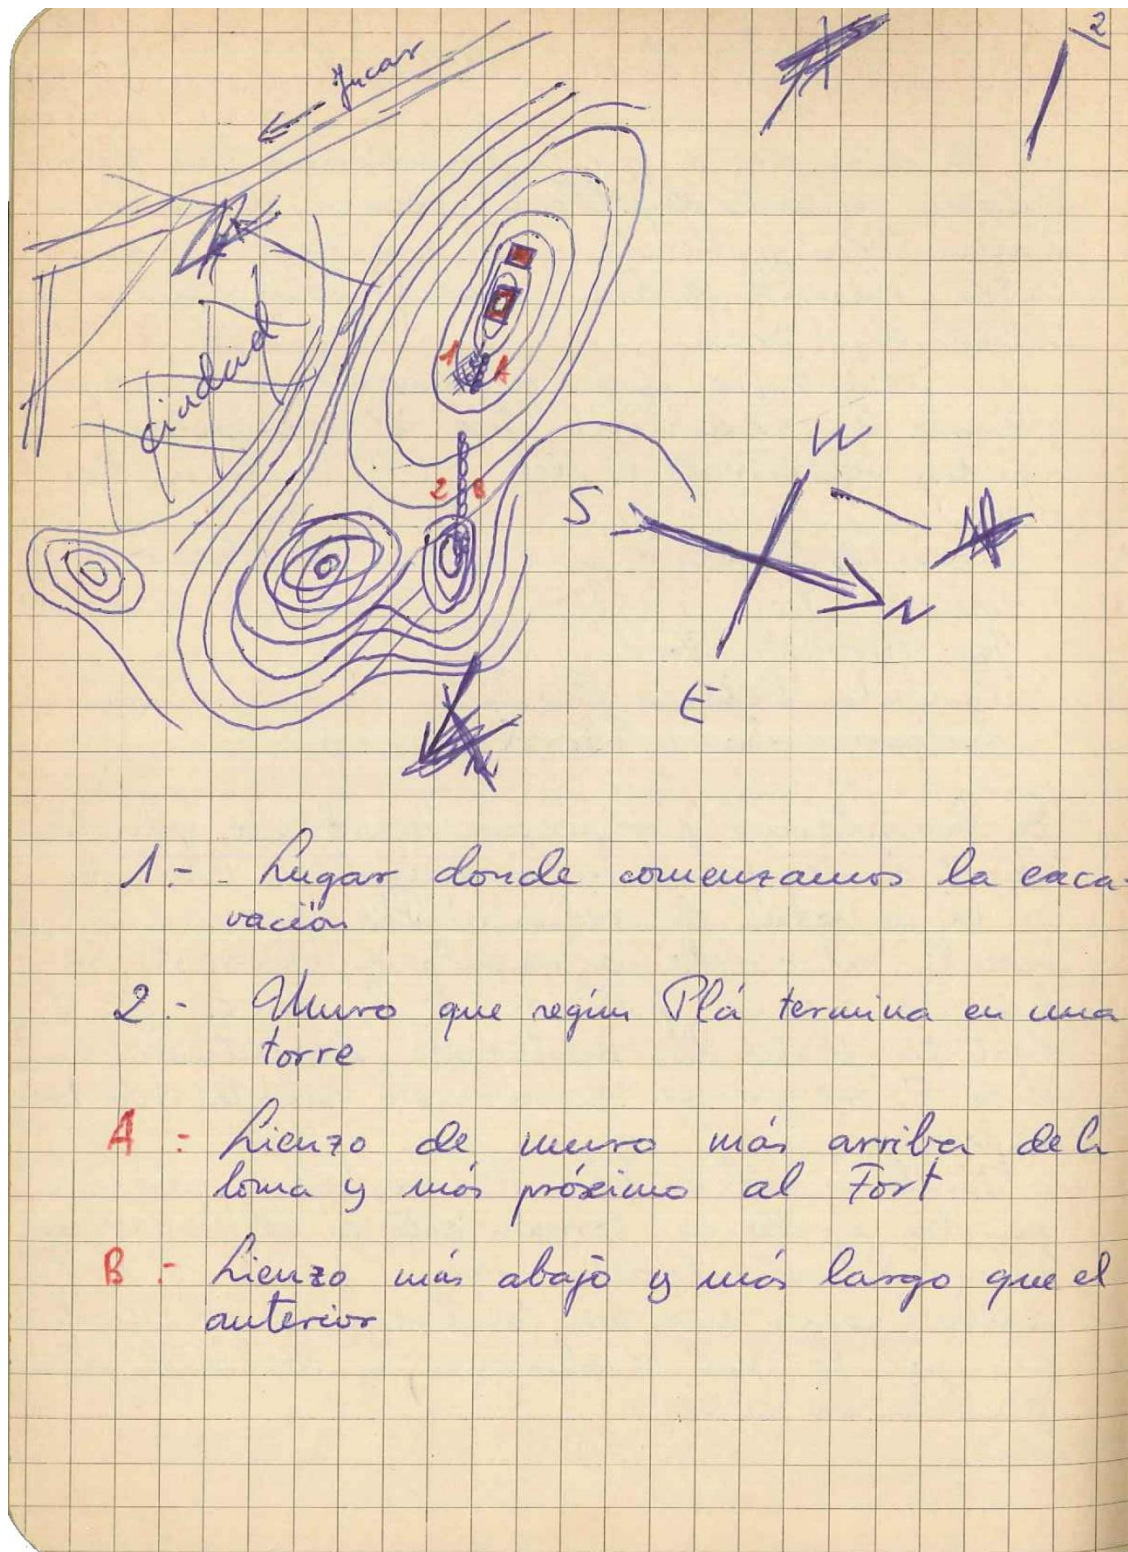 2
Jucar
Ciudad
1 A
2 B
W
S
N
E
1.- Lugar donde comenzamos la caca-
vación
2.- Muro que según Plá termina en una
torre
A.- Lienzo de muro más arriba de la
loma y más próximo al Fort
B.- Lienzo más abajo y más largo que el
anterior